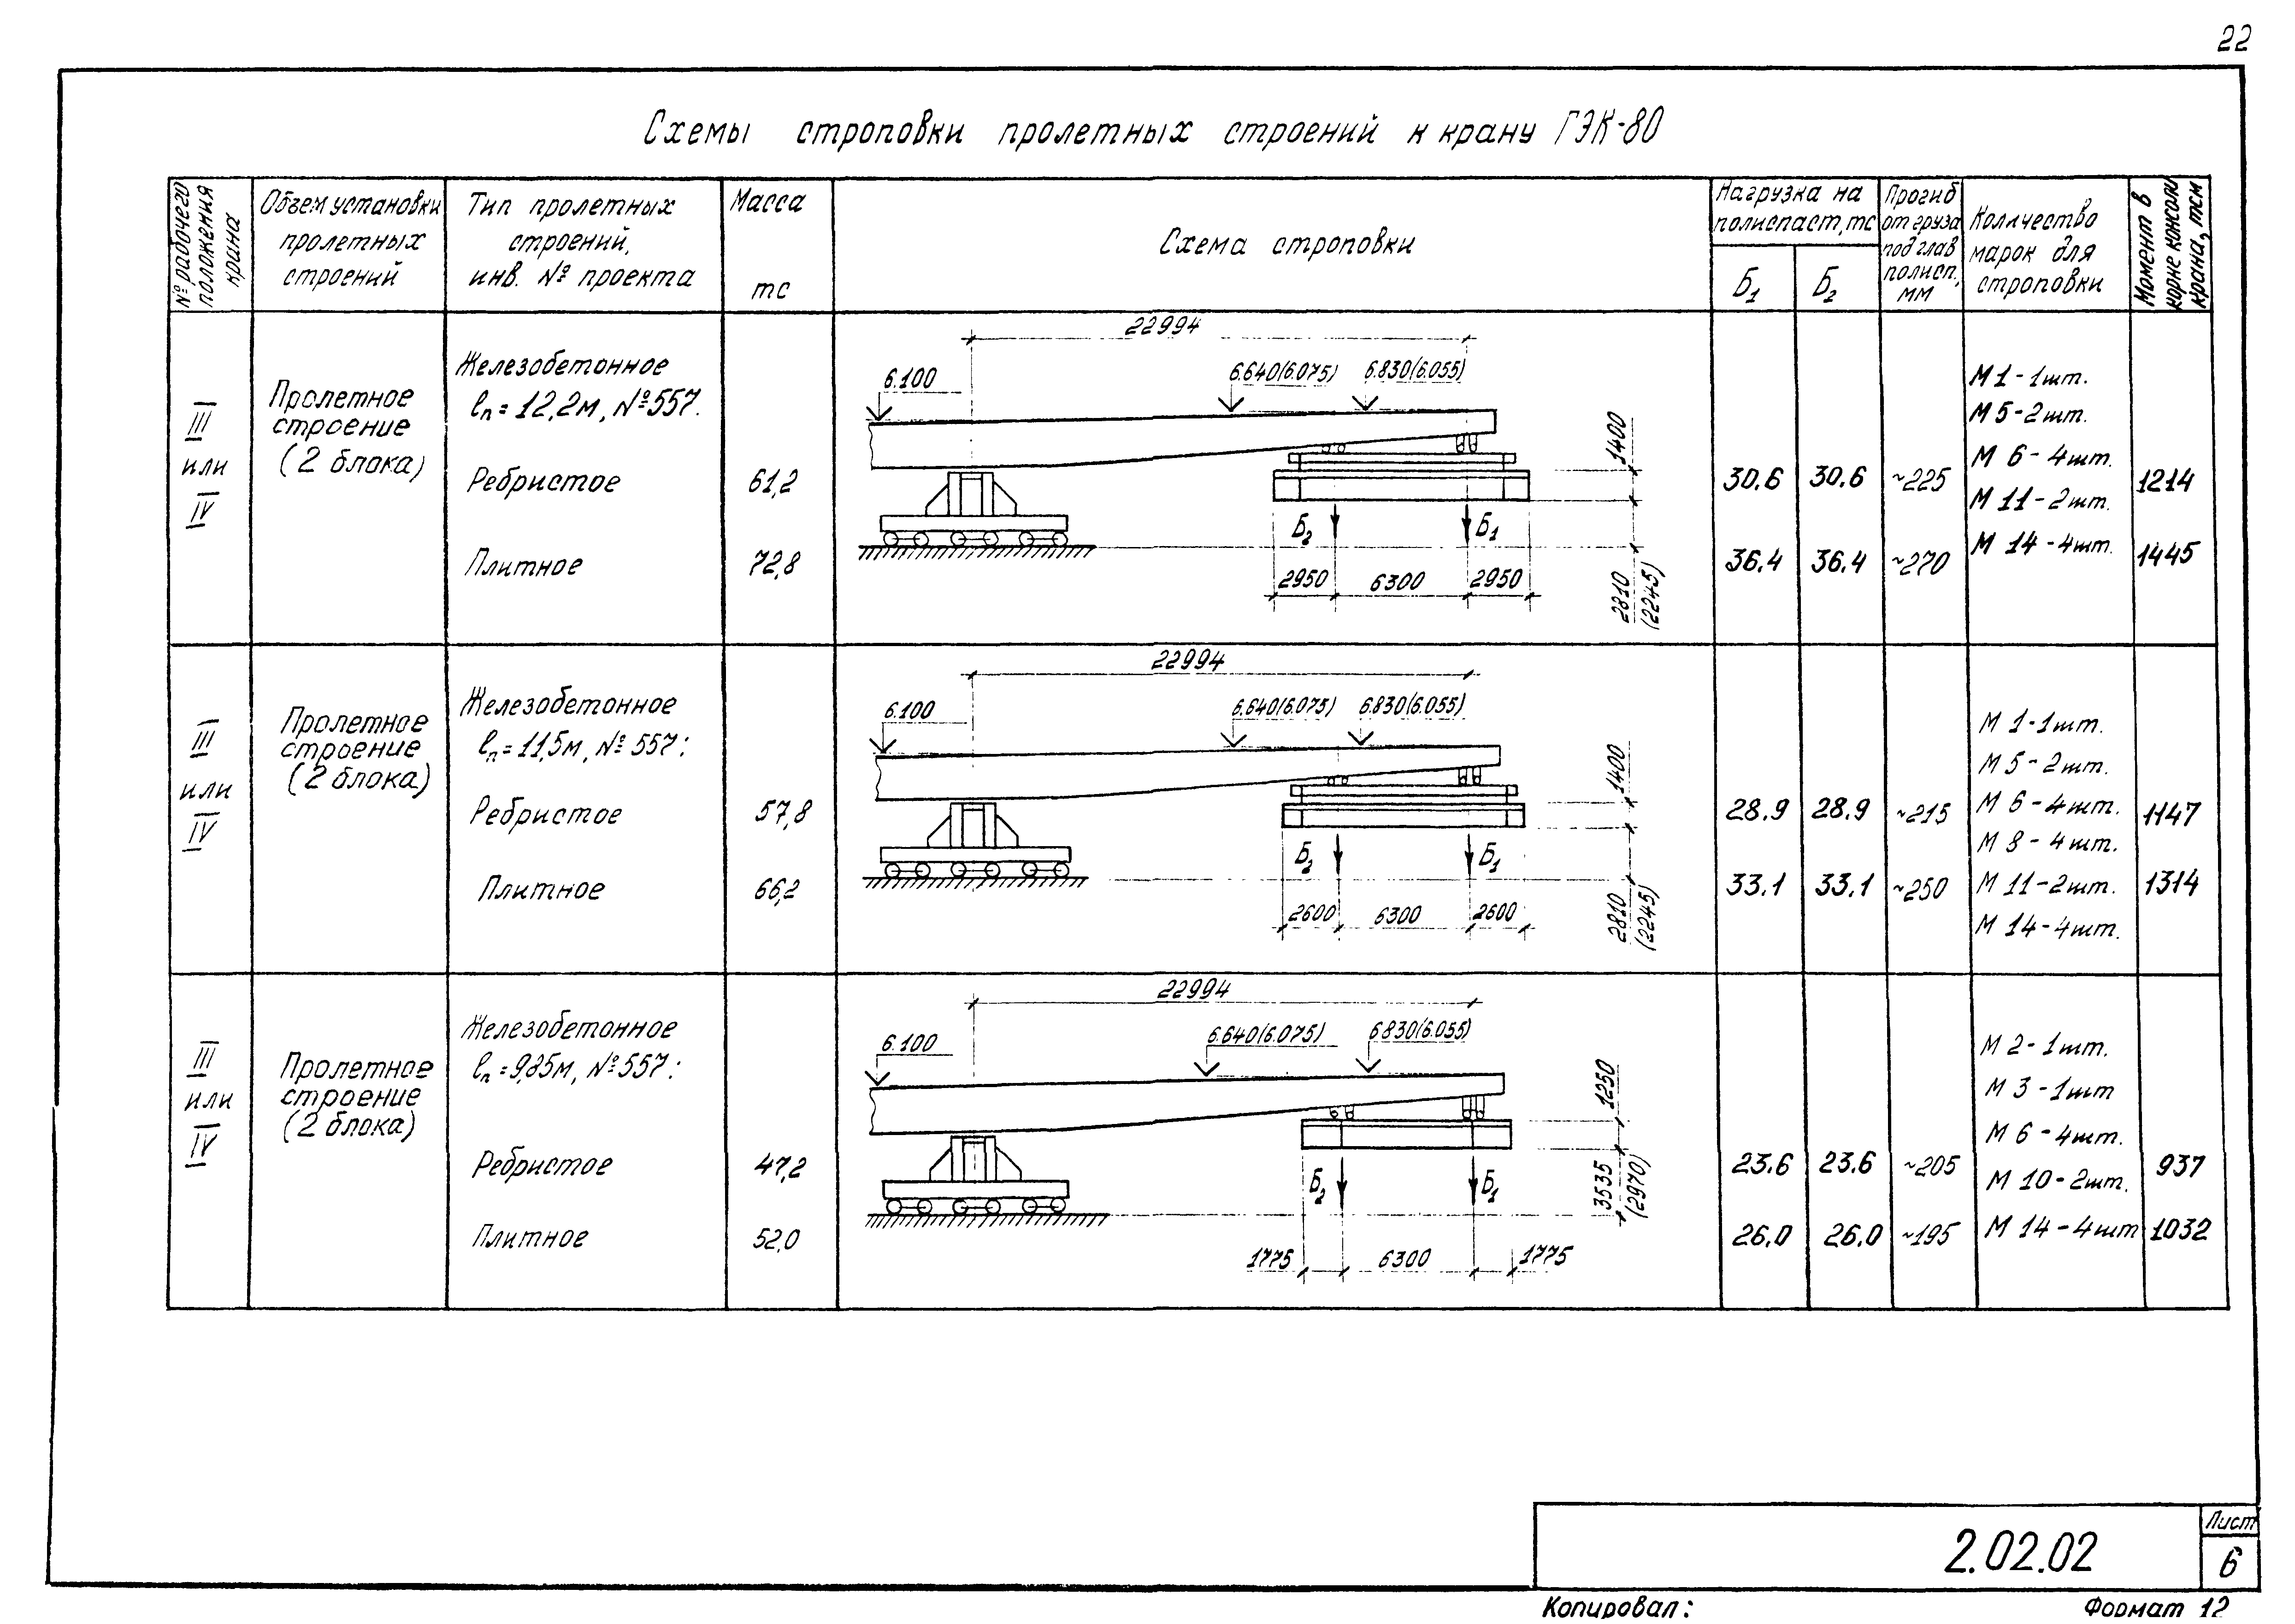 22
Схемы строповки пролетных строений к крану ГЭК-80
№ рабочего
положения
крана
Объем установки
пролетных
строений
Тип пролетных
строений,
инв. № проекта
Масса
тс
Схема строповки
Нагрузка на
полиспаст, тс
Б1
Б2
Прогиб
от груза
под глав
полисп.,
мм
Количество
марок для
строповки
Момент в
корне консоли
крана, тсм
III
или
IV
Пролетное
строение
(2 блока)
Железобетонное
lп = 12,2м, №557.
Ребристое
61,2
Плитное
72,8
22994
6.100
6.640(6.075)
6.830(6.055)
1400
Б2
Б1
2950
6300
2950
2810
(2245)
30.6
30.6
~225
36.4
36.4
~270
М 1 - 1шт.
М 5 - 2шт.
М 6 - 4шт.
М 11 - 2шт.
М 14 - 4шт.
1214
1445
III
или
IV
Пролетное
строение
(2 блока)
Железобетонное
lп = 11,5м, № 557:
Ребристое
57,8
Плитное
66,2
22994
6.100
6.640(6.075)
6.830(6.055)
1400
Б2
Б1
2600
6300
2600
2810
(2245)
28.9
28.9
~215
33.1
33.1
~250
М 1 - 1шт.
М 5 - 2шт.
М 6 - 4шт.
М 8 - 4шт.
М 11 - 2шт.
М 14 - 4шт.
1147
1314
III
или
IV
Пролетное
строение
(2 блока)
Железобетонное
lп = 9,85м, №557:
Ребристое
47,2
Плитное
52,0
22994
6.100
6.640(6.075)
6.830(6.055)
1250
Б2
Б1
3535
(2970)
1775
6300
1775
23.6
23.6
~205
26.0
26.0
~195
М 2 - 1шт.
М 3 - 1шт
М 6 - 4шт.
М 10 - 2шт.
М 14 - 4шт
937
1032
2.02.02
Лист
6
Копировал:
Формат 12